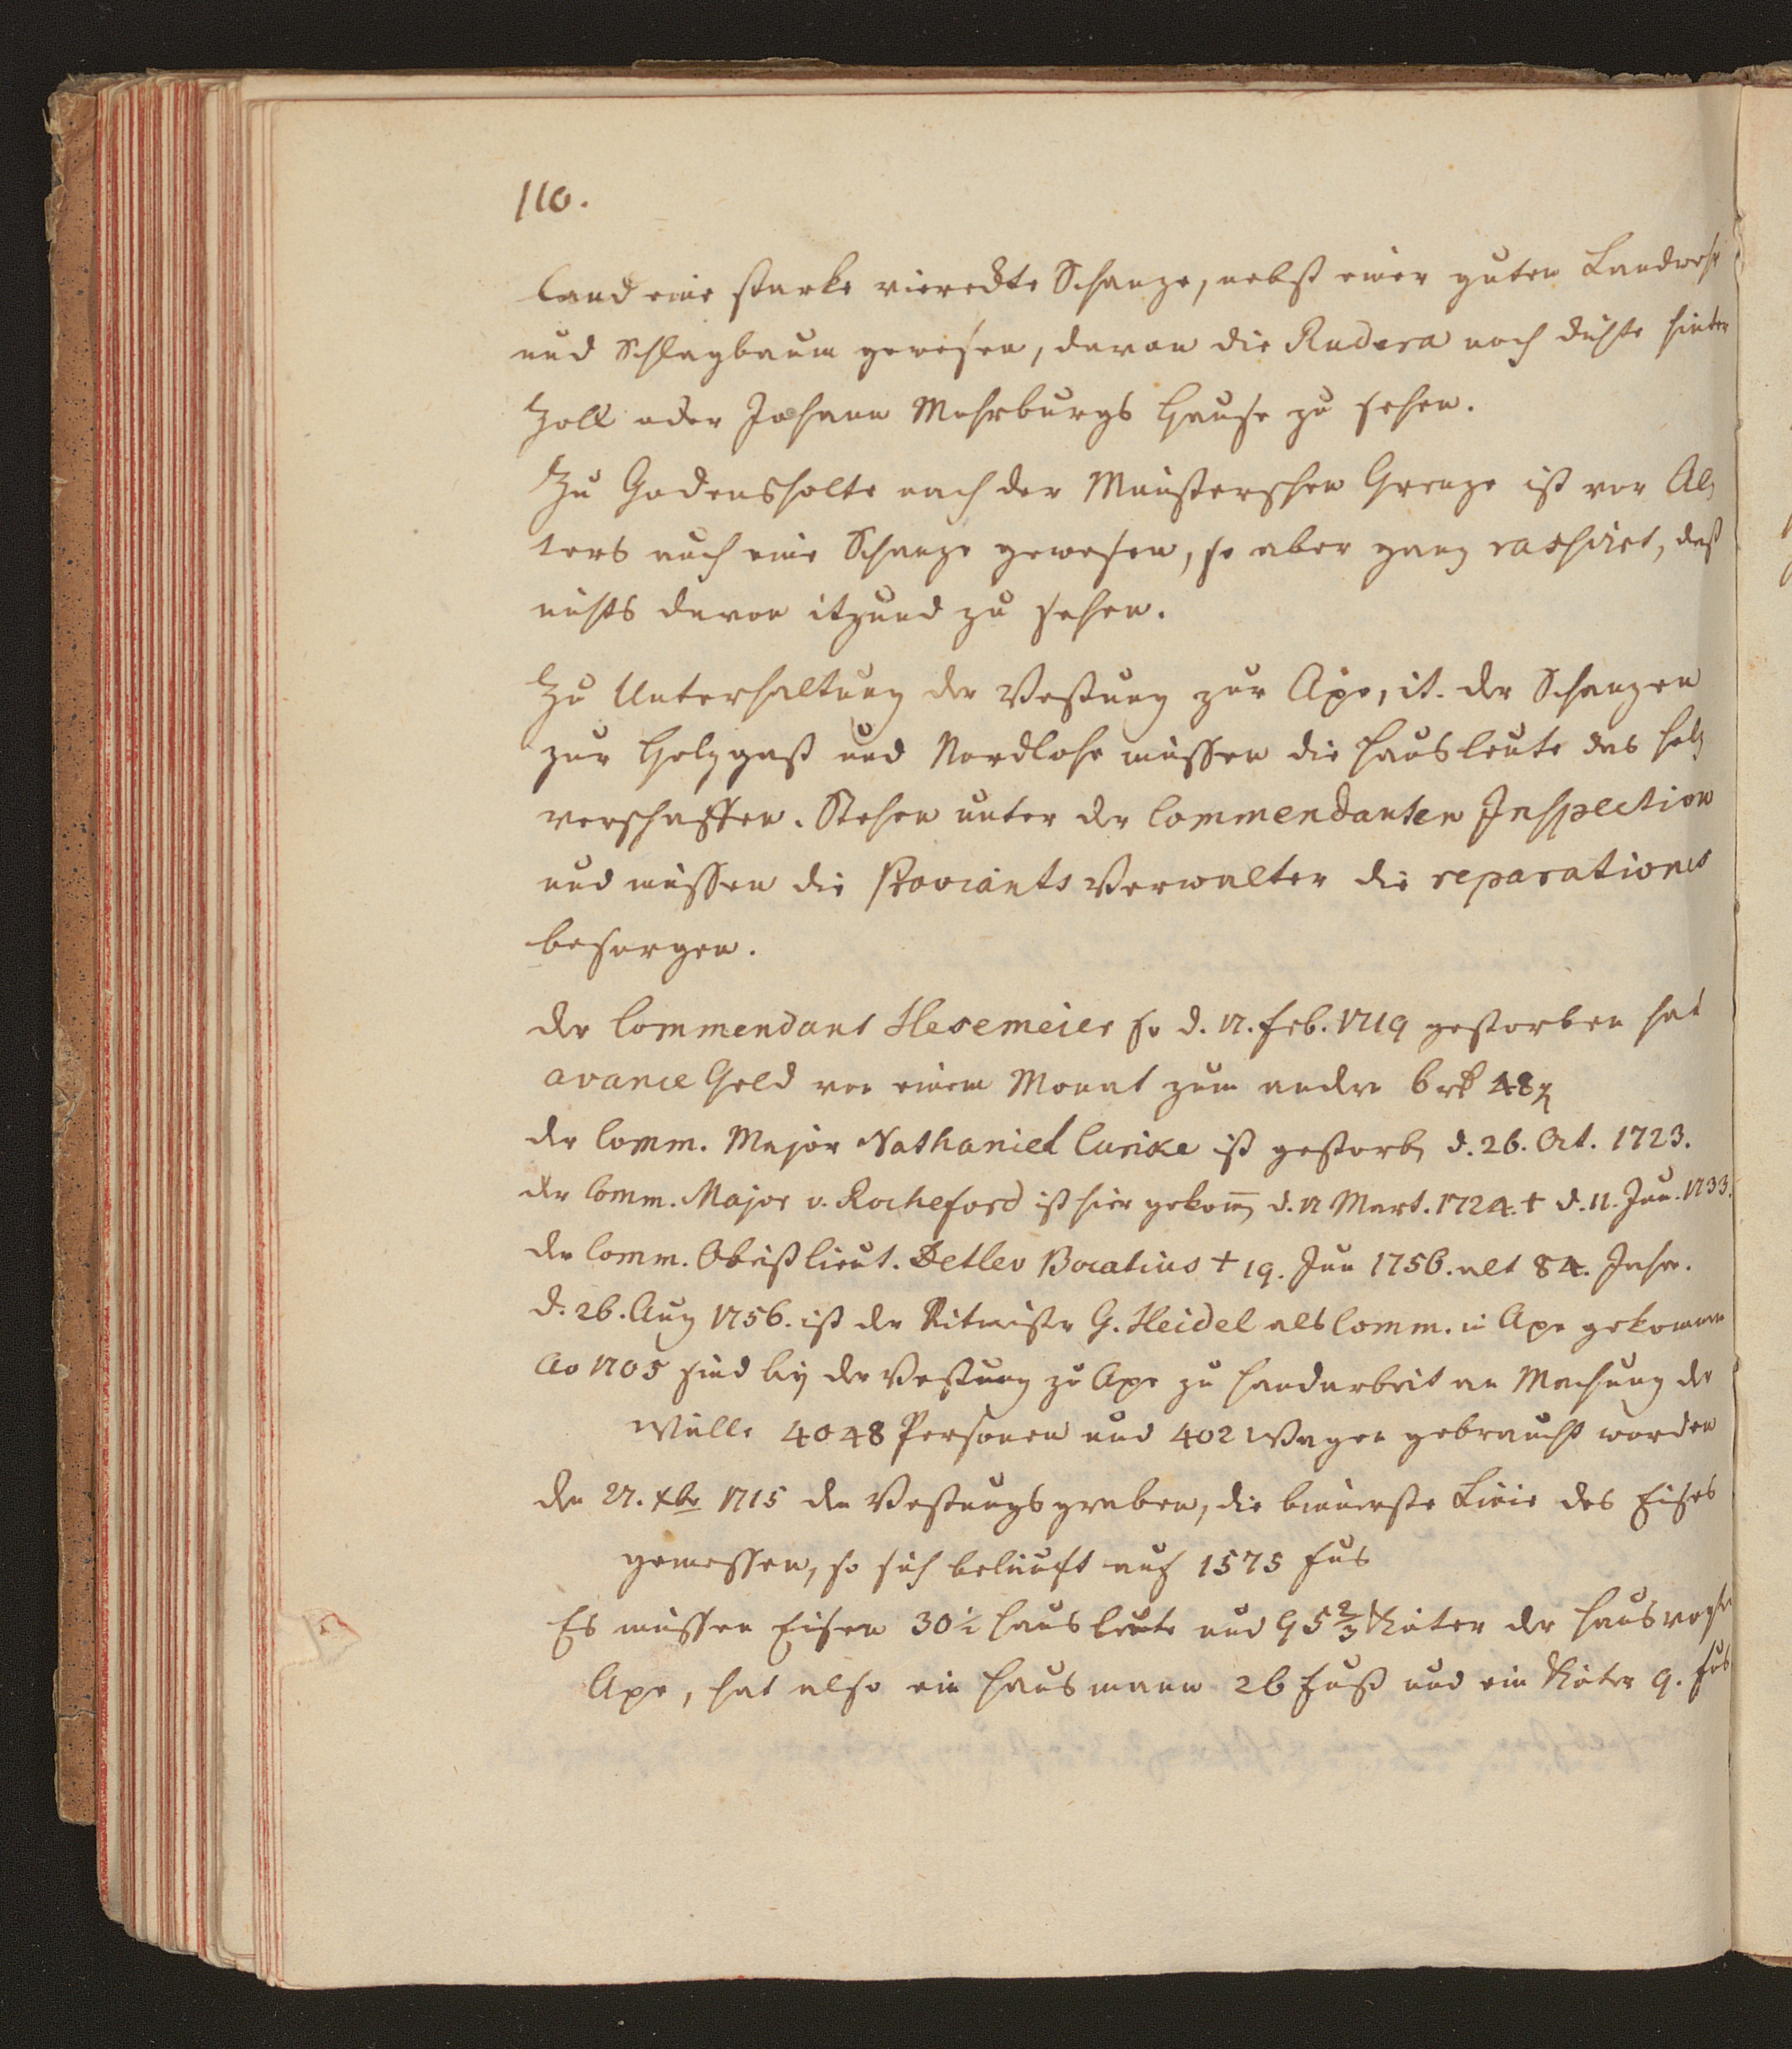 110.
land eine starke vieredte Schanze, nebst einer guten Landwehr
und Schlagbaum gewesen, davon die Rudera noch dichte hinter
Zoll oder Johann Mehrburgs Hause zu sehen.
Zu Godensholte nach der Münsterschen Grenze ist vor Al⸗
ters auch eine Schanze gewesen, so aber ganz rashirt, daß
nichts davon itzund zu sehen.
Zu Unterhaltung der Vestung zur Ape, it. der Schanzen
zur Holzgast und Nordlohe müssen die Hausleute das Holz
verschaffen. Stehen unter der Commendanten Inspection
und müssen die Proviants Verwalter die reparationes
besorgen.
der Commendant Hesemeier so d. 17. Feb. 1719 gestorben hat
avance Geld von einem Monat zum andern 6 rth 48
der Comm. Major Nathaniel Curike ist gestorb. d. 26. Oct. 1723.
der Comm. Major v. Rocheford ist hier gekom̄ d. 17 Mart. 1724. † d. 11. Jun. 1733.
der Comm. Obristlieut. Detlev Bocatius † 19. Jun 1756. alt 84. Jahr.
d. 26. Aug 1756. ist der Ritmister G. Heidel als Comm. in Ape gekommen
Ao 1705 sind bey der Vestung zu Ape zu Handarbeit an Machung der
Wälle 4048 Personen und 402 Wagen gebraucht worden
den 27. xbr 1715 den Vestungsgraben, die binnerste Linie des Eises
gemessen, so sich beläuft auf 1575 Fus
Es müssen Eisen 30½ Hausleute und 95⅔ Köter der Hausvogtei
Ape, hat also ein Hausmann 26 Fuß und ein Köter 9. Fus